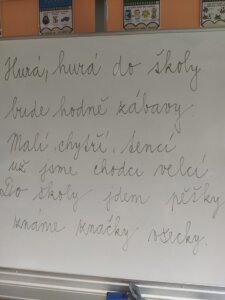 Hurá, hurá do školy
bude hodně zábavy.
Malí, chytří, šenci
už jsme chodci velcí.
Do školy jdem pěšky
známe značky všecky.